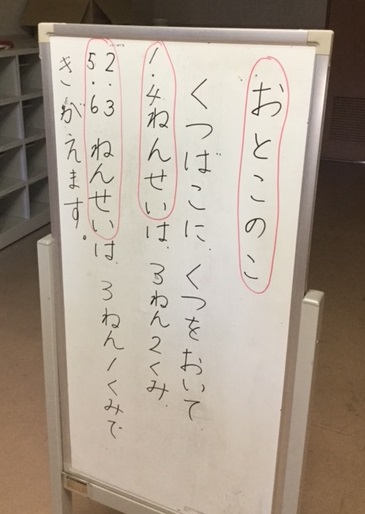 おとこのこ
くつばこに、くつをおいて
1.4ねんせいは、3ねん2くみ、
2.3 5.6 ねんせいは、3ねん1くみで
きがえます。